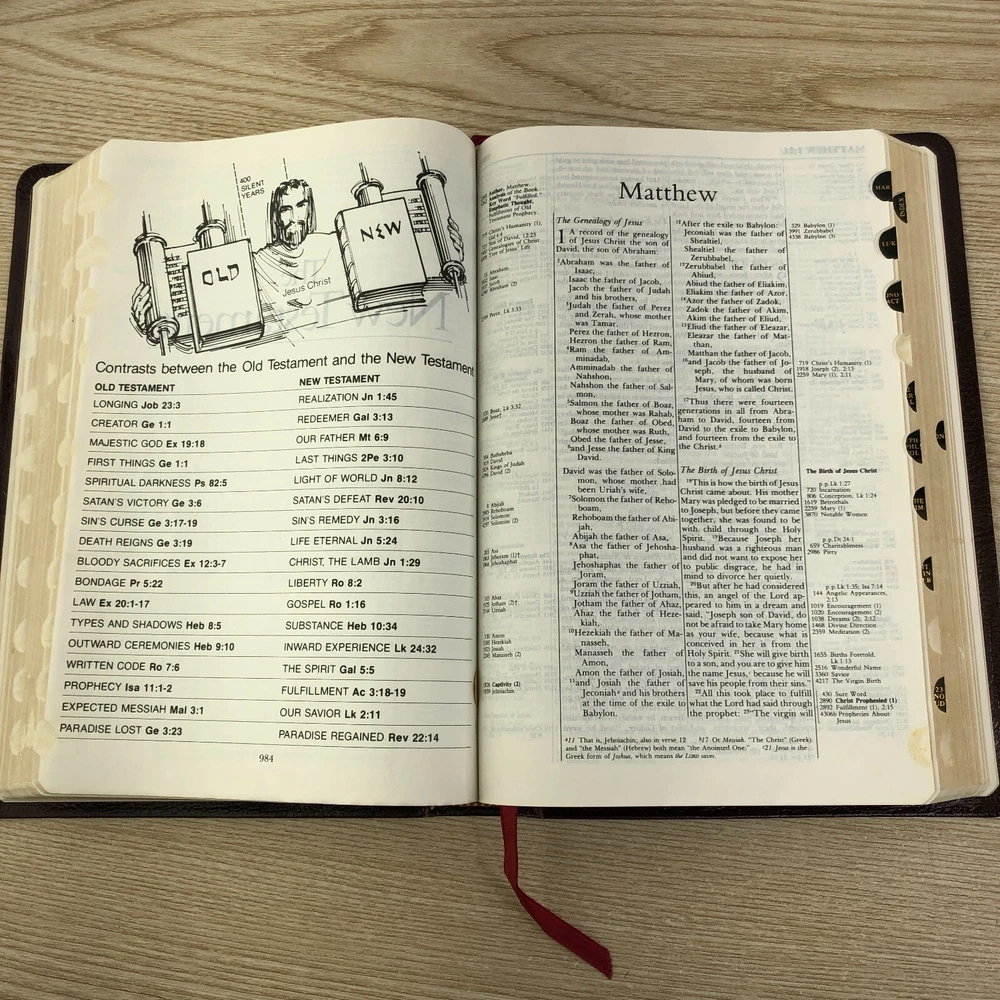 400
SILENT
YEARS
OLD
NEW
Jesus Christ
Contrasts between the Old Testament and the New Testament
OLD TESTAMENT NEW TESTAMENT
LONGING Job 23:3 REALIZATION Jn 1:45
CREATOR Ge 1:1 REDEEMER Gal 3:13
MAJESTIC GOD Ex 19:18 OUR FATHER Mt 6:9
FIRST THINGS Ge 1:1 LAST THINGS 2Pe 3:10
SPIRITUAL DARKNESS Ps 82:5 LIGHT OF WORLD Jn 8:12
SATAN'S VICTORY Ge 3:6 SATAN'S DEFEAT Rev 20:10
SIN'S CURSE Ge 3:17-19 SIN'S REMEDY Jn 3:16
DEATH REIGNS Ge 3:19 LIFE ETERNAL Jn 5:24
BLOODY SACRIFICES Ex 12:3-7 CHRIST, THE LAMB Jn 1:29
BONDAGE Pr 5:22 LIBERTY Ro 8:2
LAW Ex 20:1-17 GOSPEL Ro 1:16
TYPES AND SHADOWS Heb 8:5 SUBSTANCE Heb 10:34
OUTWARD CEREMONIES Heb 9:10 INWARD EXPERIENCE Lk 24:32
WRITTEN CODE Ro 7:6 THE SPIRIT Gal 5:5
PROPHECY Isa 11:1-2 FULFILLMENT Ac 3:18-19
EXPECTED MESSIAH Mal 3:1 OUR SAVIOR Lk 2:11
PARADISE LOST Ge 3:23 PARADISE REGAINED Rev 22:14
984
Matthew
The Genealogy of Jesus
1 A record of the genealogy
of Jesus Christ the son of
David, the son of Abraham:
2Abraham was the father of
Isaac,
Isaac the father of Jacob,
Jacob the father of Judah
and his brothers,
3Judah the father of Perez
and Zerah, whose mother
was Tamar,
Perez the father of Hezron,
Hezron the father of Ram,
4Ram the father of Am-
minadab,
Amminadab the father of
Nahshon,
Nahshon the father of Sal-
mon,
5Salmon the father of Boaz,
whose mother was Rahab,
Boaz the father of Obed,
whose mother was Ruth,
Obed the father of Jesse,
6and Jesse the father of King
David.
David was the father of Solo-
mon, whose mother had
been Uriah's wife,
7Solomon the father of Reho-
boam,
Rehoboam the father of Abi-
jah,
Abijah the father of Asa,
8Asa the father of Jehosha-
phat,
Jehoshaphat the father of
Joram,
Joram the father of Uzziah,
9Uzziah the father of Jotham,
Jotham the father of Ahaz,
Ahaz the father of Heze-
kiah,
10Hezekiah the father of Ma-
nasseh,
Manasseh the father of
Amon,
Amon the father of Josiah,
11and Josiah the father of
Jeconiah a and his brothers
at the time of the exile to
Babylon.
12After the exile to Babylon:
Jeconiah was the father of
Shealtiel,
Shealtiel the father of
Zerubbabel,
13Zerubbabel the father of
Abiud,
Abiud the father of Eliakim,
Eliakim the father of Azor,
14Azor the father of Zadok,
Zadok the father of Akim,
Akim the father of Eliud,
15Eliud the father of Eleazar,
Eleazar the father of Mat-
than,
Matthan the father of Jacob,
16and Jacob the father of Jo-
seph, the husband of
Mary, of whom was born
Jesus, who is called Christ.
17Thus there were fourteen
generations in all from Abra-
ham to David, fourteen from
David to the exile to Babylon,
and fourteen from the exile to
the Christ.b
The Birth of Jesus Christ
18This is how the birth of Jesus
Christ came about. His mother
Mary was pledged to be married
to Joseph, but before they came
together, she was found to be
with child through the Holy
Spirit. 19Because Joseph her
husband was a righteous man
and did not want to expose her
to public disgrace, he had in
mind to divorce her quietly.
20But after he had considered
this, an angel of the Lord ap-
peared to him in a dream and
said, "Joseph son of David, do
not be afraid to take Mary home
as your wife, because what is
conceived in her is from the
Holy Spirit. 21She will give birth
to a son, and you are to give him
the name Jesus,c because he will
save his people from their sins."
22All this took place to fulfill
what the Lord had said through
the prophet: 23"The virgin will
329 Babylon (1)
3991 Zerubbabel
4338 Babylon (3)
719 Christ's Humanity (1)
1918 Joseph (2), 2:13
2259 Mary (1), 2:11
The Birth of Jesus Christ
p.p. Lk 1:27
720 Incarnation
806 Conception, Lk 1:24
1619 Betrothals
2259 Mary (1)
3870 Notable Women
p.p. Dt 24:1
659 Charitableness
2986 Piety
p.p. Lk 1:35; Isa 7:14
144 Angelic Appearances,
2:13
1019 Encouragement (1)
1020 Encouragement (2)
1038 Dreams (2), 2:12
1468 Divine Direction
2359 Meditation (2)
1655 Births Foretold,
Lk 1:13
2516 Wonderful Name
3360 Savior
4217 The Virgin Birth
430 Sure Word
2890 Christ Prophesied (1)
2892 Fulfillment (1), 2:15
4306b Prophecies About
Jesus
a11 That is, Jehoiachin; also in verse 12 b17 Or Messiah. "The Christ" (Greek)
and "the Messiah" (Hebrew) both mean "the Anointed One." c21 Jesus is the
Greek form of Joshua, which means the LORD saves.
MAR
INDEX
LUK